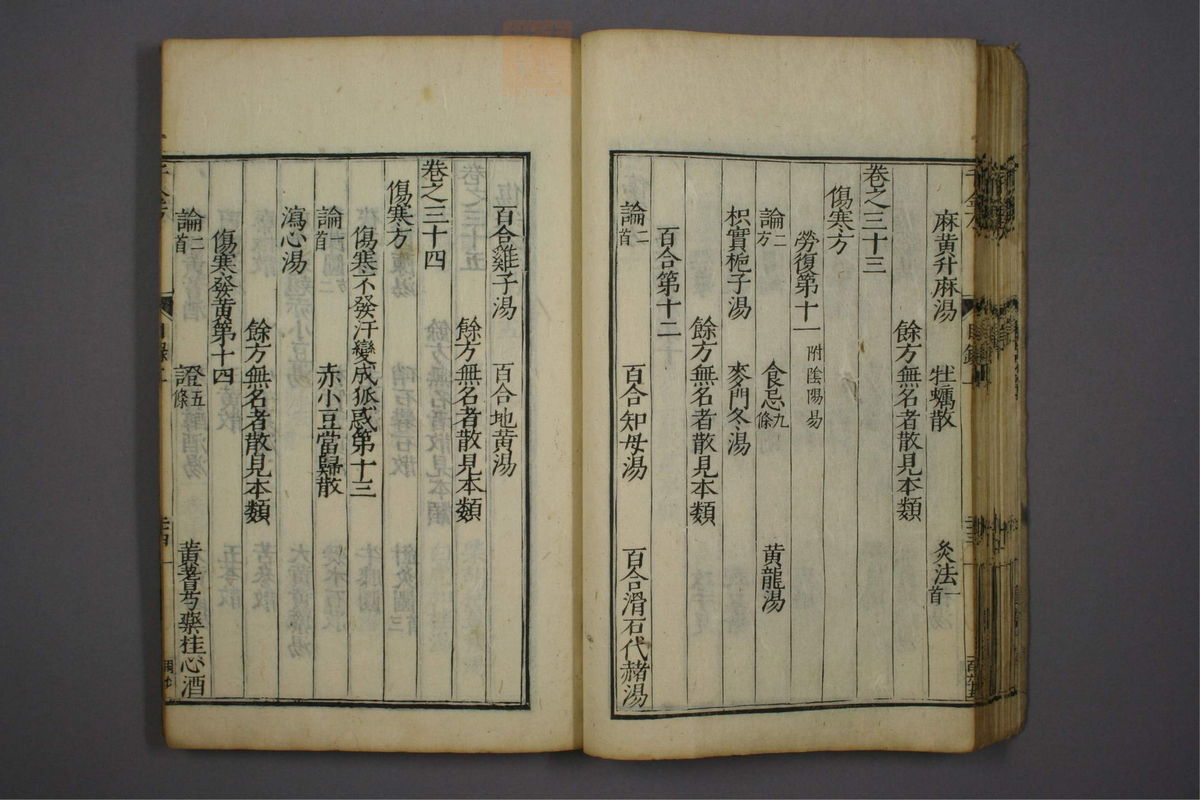 麻黄升麻湯 牡蠣散 灸法一首
餘方無名者散見本類
卷之三十三
傷寒方
勞復第十一附陰陽易
論二方 食忌九條 黄龍湯
枳實梔子湯 麥門冬湯
餘方無名者散見本類
百合第十二
論二首 百合知母湯 百合滑石代赭湯
百合雞子湯 百合地黄湯
餘方無名者散見本類
卷之三十四
傷寒方
傷寒不發汗變成狐惑第十三
論一首 赤小豆當歸散
瀉心湯
餘方無名者散見本類
傷寒發黄第十四
論二首 證五條 黄耆芍藥桂心酒